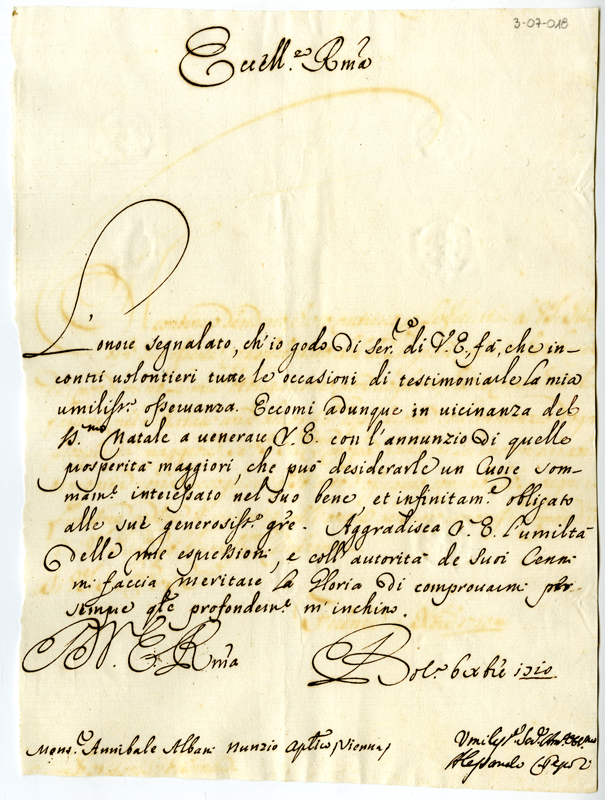 3-07-018
Eccell.ᵃ Rma
L'onore segnalato, ch'io godo di ser.ʳᵉ di V. E. fà, che in-
contri volontieri tutte le occasioni di testimoniarle la mia
umiliss.ᵃ osservanza. Eccomi adunque in vicinanza del
S.ᵐᵒ Natale a venerare V. E. con l'annunzio di quelle
prosperità maggiori, che può desiderarle un Cuore som-
mam.ᵉ interessato nel suo bene, et infinitam.ᵉ obligato
alle sue generosiss.ᵉ gr̃e. Aggradisca V. E. l'umiltà
delle mie espressioni, e coll'autorità de suoi Cenni
mi faccia meritare la Gloria di comprovarmi per
sempre q̃le profondam.ᵉ m'inchino.
D. V. E. Rma
Bol.ᵃ 6 Xbr̃e 1710.
Mons.ᵉ Annibale Albani Nunzio Aptlico /Vienna/
Umiliss.ᵒ
Alessandro